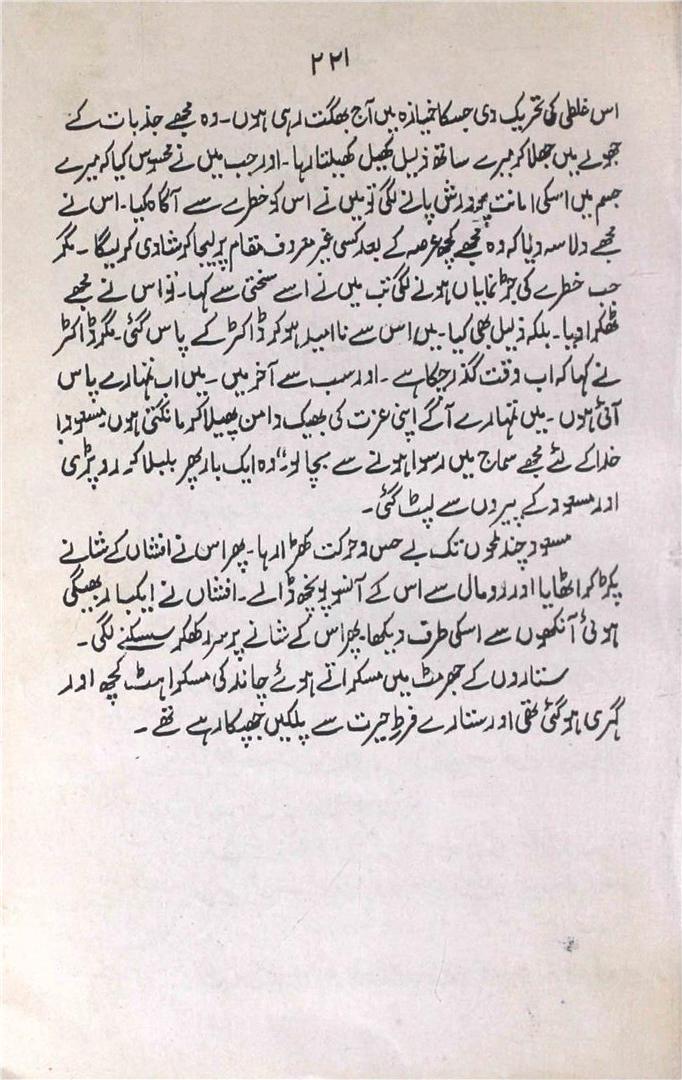 ۲۲۱
اس غلطی کی تحریک دی جسکا خمیازہ میں آج بھگت رہی ہوں۔ وہ مجھے جذبات کے
جھولے میں جھلا کر میرے ساتھ ذلیل کھیل کھیلتا رہا۔ اور جب میں نے محسوس کیا کہ میرے
جسم میں اسکی امانت پرورش پانے لگی تو میں نے اس کو خطرے سے آگاہ کیا۔ اس نے
مجھے دلاسہ دیا کہ وہ مجھے کچھ عرصہ کے بعد کسی غیر معروف مقام پر لیجا کر شادی کر لیگا۔ مگر
جب خطرے کی جڑ نمایاں ہونے لگی تب میں نے اسے سختی سے کہا۔ تو اس نے مجھے
ٹھکرا دیا۔ بلکہ ذلیل بھی کیا۔ میں اس سے نا امید ہو کر ڈاکٹر کے پاس گئی۔ مگر ڈاکٹر
نے کہا کہ اب وقت گذر چکا ہے۔ اور سب سے آخر میں۔ میں اب تمہارے پاس
آئی ہوں۔ میں تمہارے آگے اپنی عزت کی بھیک دامن پھیلا کر مانگتی ہوں۔ مسعود!
خدا کے لئے مجھے سماج میں رسوا ہونے سے بچا لو۔" وہ ایک بار پھر بلبلا کر رو پڑی
اور مسعود کے پیروں سے لپٹ گئی۔
مسعود چند لمحوں تک بے حس و حرکت کھڑا رہا۔ پھر اس نے افشاں کے شانے
پکڑ کر اٹھایا اور رومال سے اس کے آنسو پونچھ ڈالے۔ افشاں نے ایکبار بھیگی
ہوئی آنکھوں سے اسکی طرف دیکھا۔ پھر اس کے شانے پر سر رکھکر سسکنے لگی۔
ستاروں کے جھرمٹ میں مسکراتے ہوئے چاند کی مسکراہٹ کچھ اور
گہری ہو گئی تھی اور ستارے فرطِ حیرت سے پلکیں جھپکا رہے تھے۔